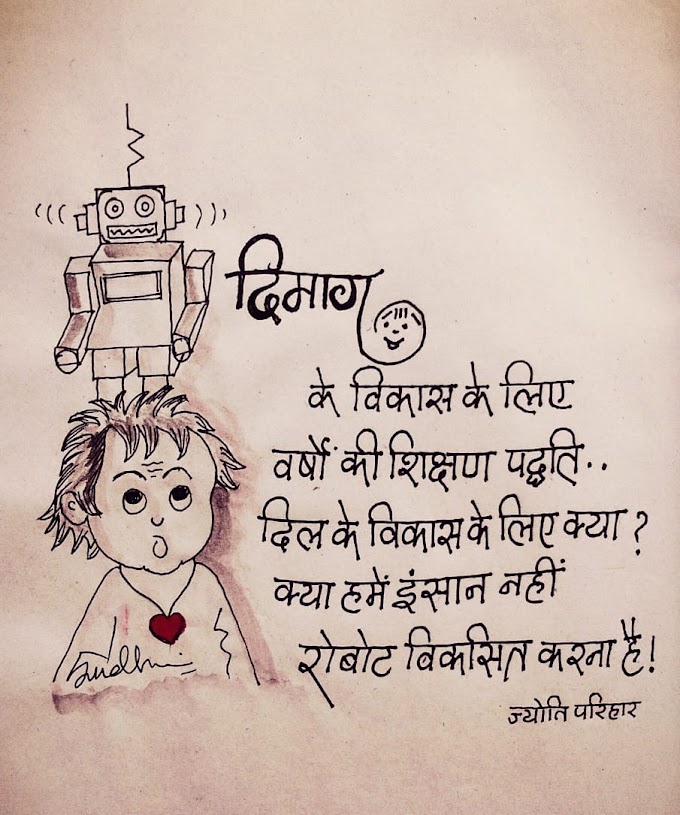 दिमाग
के विकास के लिए
वर्षों की शिक्षण पद्धति..
दिल के विकास के लिए क्या ?
क्या हमें इंसान नहीं
रोबोट विकसित करना है!
ज्योति परिहार